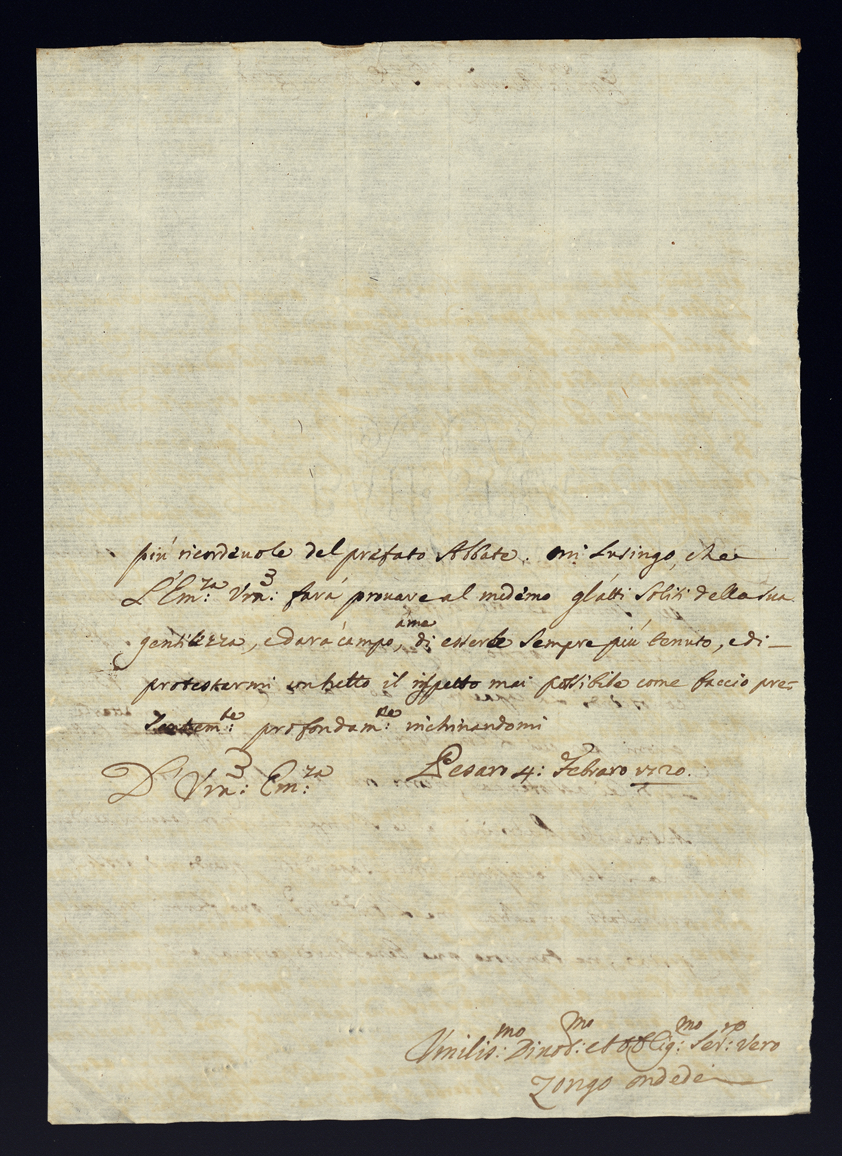 più ricordeuole del prefato Abbate. mi lusingo, che
L'Em:za Vra: farà prouare al medemo gl'atti soliti della sua
gentilezza, e darà campo, à me di esserle sempre più tenuto, e di
protestarmi con tutto il rispetto mai possibile come faccio pre-
sentem:te profondam:te inchinandomi
D' Vra: Em:za Pesaro 4: Febraro 1720.
Vmilis:mo Diuot:mo et Oblig:mo Ser:re Vero
Zongo Ondedei